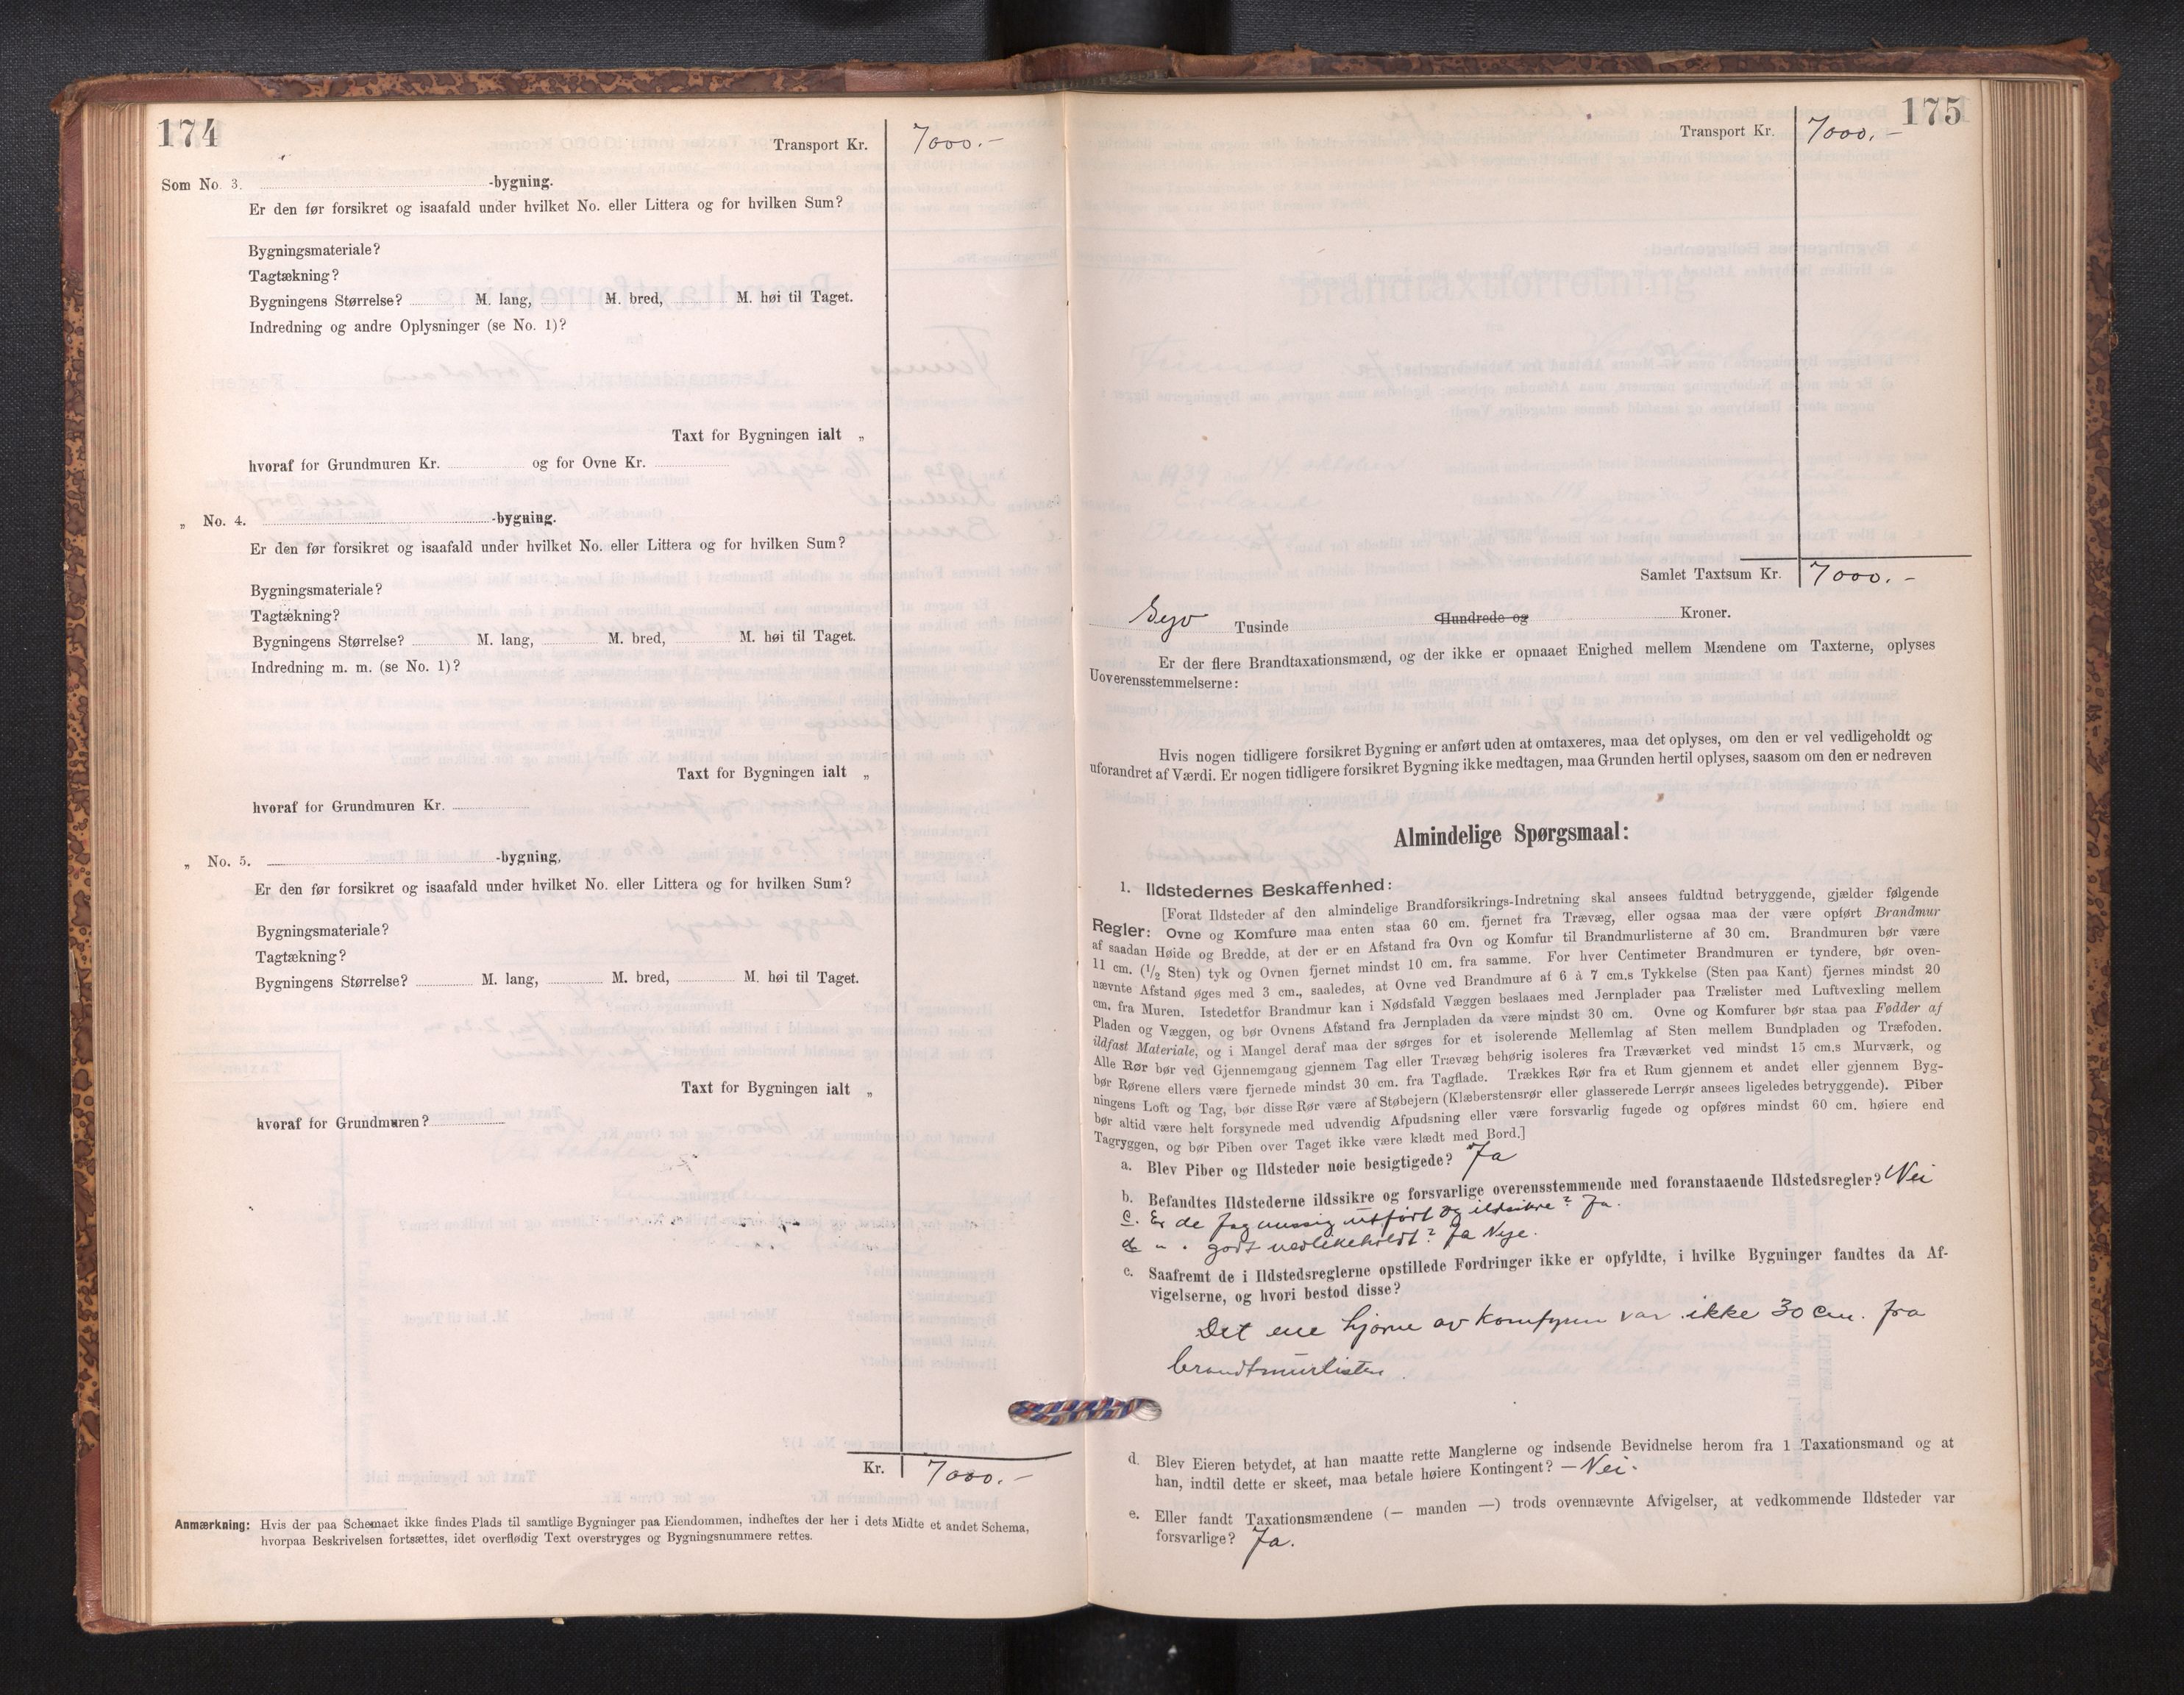 174
Transport Kr. 7000.-
Som No. 3. -bygning.
Er den før forsikret og isaafald under hvilket No. eller Littera og for hvilken Sum?
Bygningsmateriale?
Tagtækning?
Bygningens Størrelse? M. lang, M. bred, M. høi til Taget.
Indredning og andre Oplysninger (se No. 1)?
Taxt for Bygningen ialt „
hvoraf for Grundmuren Kr. og for Ovne Kr.
„ No. 4. -bygning.
Er den før forsikret og isaafald under hvilket No. eller Littera og for hvilken Sum?
Bygningsmateriale?
Tagtækning?
Bygningens Størrelse? M. lang, M. bred, M. høi til Taget.
Indredning m. m. (se No. 1)?
Taxt for Bygningen ialt „
hvoraf for Grundmuren Kr.
„ No. 5. -bygning.
Er den før forsikret og isaafald under hvilket No. eller Littera og for hvilken Sum?
Bygningsmateriale?
Tagtækning?
Bygningens Størrelse? M. lang, M. bred, M. høi til Taget.
Taxt for Bygningen ialt „
hvoraf for Grundmuren?
Kr. 7000.-
Anmærkning: Hvis der paa Schemaet ikke findes Plads til samtlige Bygninger paa Eiendommen, indheftes der her i dets Midte et andet Schema,
hvorpaa Beskrivelsen fortsættes, idet overflødig Text overstryges og Bygningsnummere rettes.
175
Transport Kr. 7000.-
Samlet Taxtsum Kr. 7000.-
Syv Tusinde Hundrede og Kroner.
Er der flere Brandtaxationsmænd, og der ikke er opnaaet Enighed mellem Mændene om Taxterne, oplyses
Uoverensstemmelserne:
Hvis nogen tidligere forsikret Bygning er anført uden at omtaxeres, maa det oplyses, om den er vel vedligeholdt og
uforandret af Værdi. Er nogen tidligere forsikret Bygning ikke medtagen, maa Grunden hertil oplyses, saasom om den er nedreven
Almindelige Spørgsmaal:
1. Ildstedernes Beskaffenhed:
[Forat Ildsteder af den almindelige Brandforsikrings-Indretning skal ansees fuldtud betryggende, gjælder følgende
Regler: Ovne og Komfure maa enten staa 60 cm. fjernet fra Trævæg, eller ogsaa maa der være opført Brandmur
af saadan Høide og Bredde, at der er en Afstand fra Ovn og Komfur til Brandmurlisterne af 30 cm. Brandmuren bør være
11 cm. (1/2 Sten) tyk og Ovnen fjernet mindst 10 cm. fra samme. For hver Centimeter Brandmuren er tyndere, bør oven-
nævnte Afstand øges med 3 cm., saaledes, at Ovne ved Brandmure af 6 à 7 cm.s Tykkelse (Sten paa Kant) fjernes mindst 20
cm. fra Muren. Istedetfor Brandmur kan i Nødsfald Væggen beslaaes med Jernplader paa Trælister med Luftvexling mellem
Pladen og Væggen, og bør Ovnens Afstand fra Jernpladen da være mindst 30 cm. Ovne og Komfurer bør staa paa Fødder af
ildfast Materiale, og i Mangel deraf maa der sørges for et isolerende Mellemlag af Sten mellem Bundpladen og Træfoden.
Alle Rør bør ved Gjennemgang gjennem Tag eller Trævæg behørig isoleres fra Træværket ved mindst 15 cm.s Murværk, og
bør Rørene ellers være fjernede mindst 30 cm. fra Tagflade. Trækkes Rør fra et Rum gjennem et andet eller gjennem Byg-
ningens Loft og Tag, bør disse Rør være af Støbejern (Klæberstensrør eller glasserede Lerrør ansees ligeledes betryggende). Piber
bør altid være helt forsynede med udvendig Afpudsning eller være forsvarlig fugede og opføres mindst 60 cm. høiere end
Tagryggen, og bør Piben over Taget ikke være klædt med Bord.]
a. Blev Piber og Ildsteder nøie besigtigede? Ja
b. Befandtes Ildstederne ildssikre og forsvarlige overensstemmende med foranstaaende Ildstedsregler? Nei
c. Er de fagmessig utført og ildsikre? Ja.
d. " . godt vedlikeholdt? Ja Nye.
c. Saafremt de i Ildstedsreglerne opstillede Fordringer ikke er opfyldte, i hvilke Bygninger fandtes da Af-
vigelserne, og hvori bestod disse?
Det ene hjørne av komfyren var ikke 30 cm. fra
brandtmurlisten.
d. Blev Eieren betydet, at han maatte rette Manglerne og indsende Bevidnelse herom fra 1 Taxationsmand og at
han, indtil dette er skeet, maa betale høiere Kontingent? — Nei.
e. Eller fandt Taxationsmændene (— manden —) trods ovennævnte Afvigelser, at vedkommende Ildsteder var
forsvarlige? Ja.